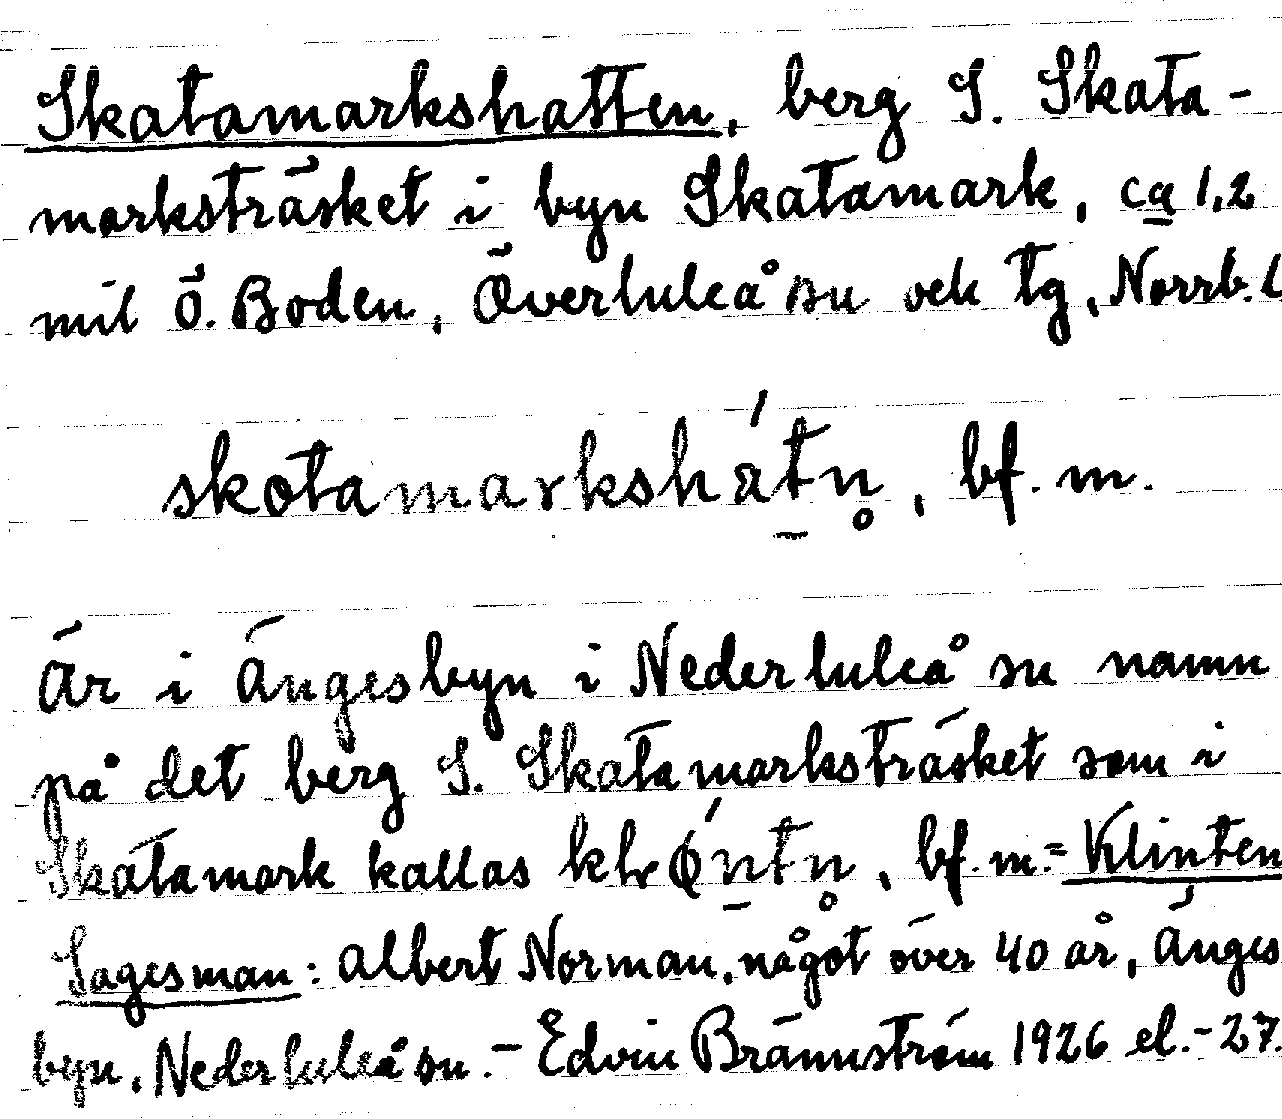 Skatamarkshatten, berg S. Skata-
marksträsket i byn Skatamark, ca 1,2
mil ö. Boden, Överluleå sn och tg, Norrb. l
skatamarkshát̠n̥, bf. m.
Är i Ängesbyn i Nederluleå sn namn
på det berg S. Skatamarksträsket som i
Skatamark kallas bf. m. = Klinten
Sagesman: Albert Norman, något över 40 år, Änges
byn, Nederluleå sn. - Edvin Brännström 1926 el. - 27.